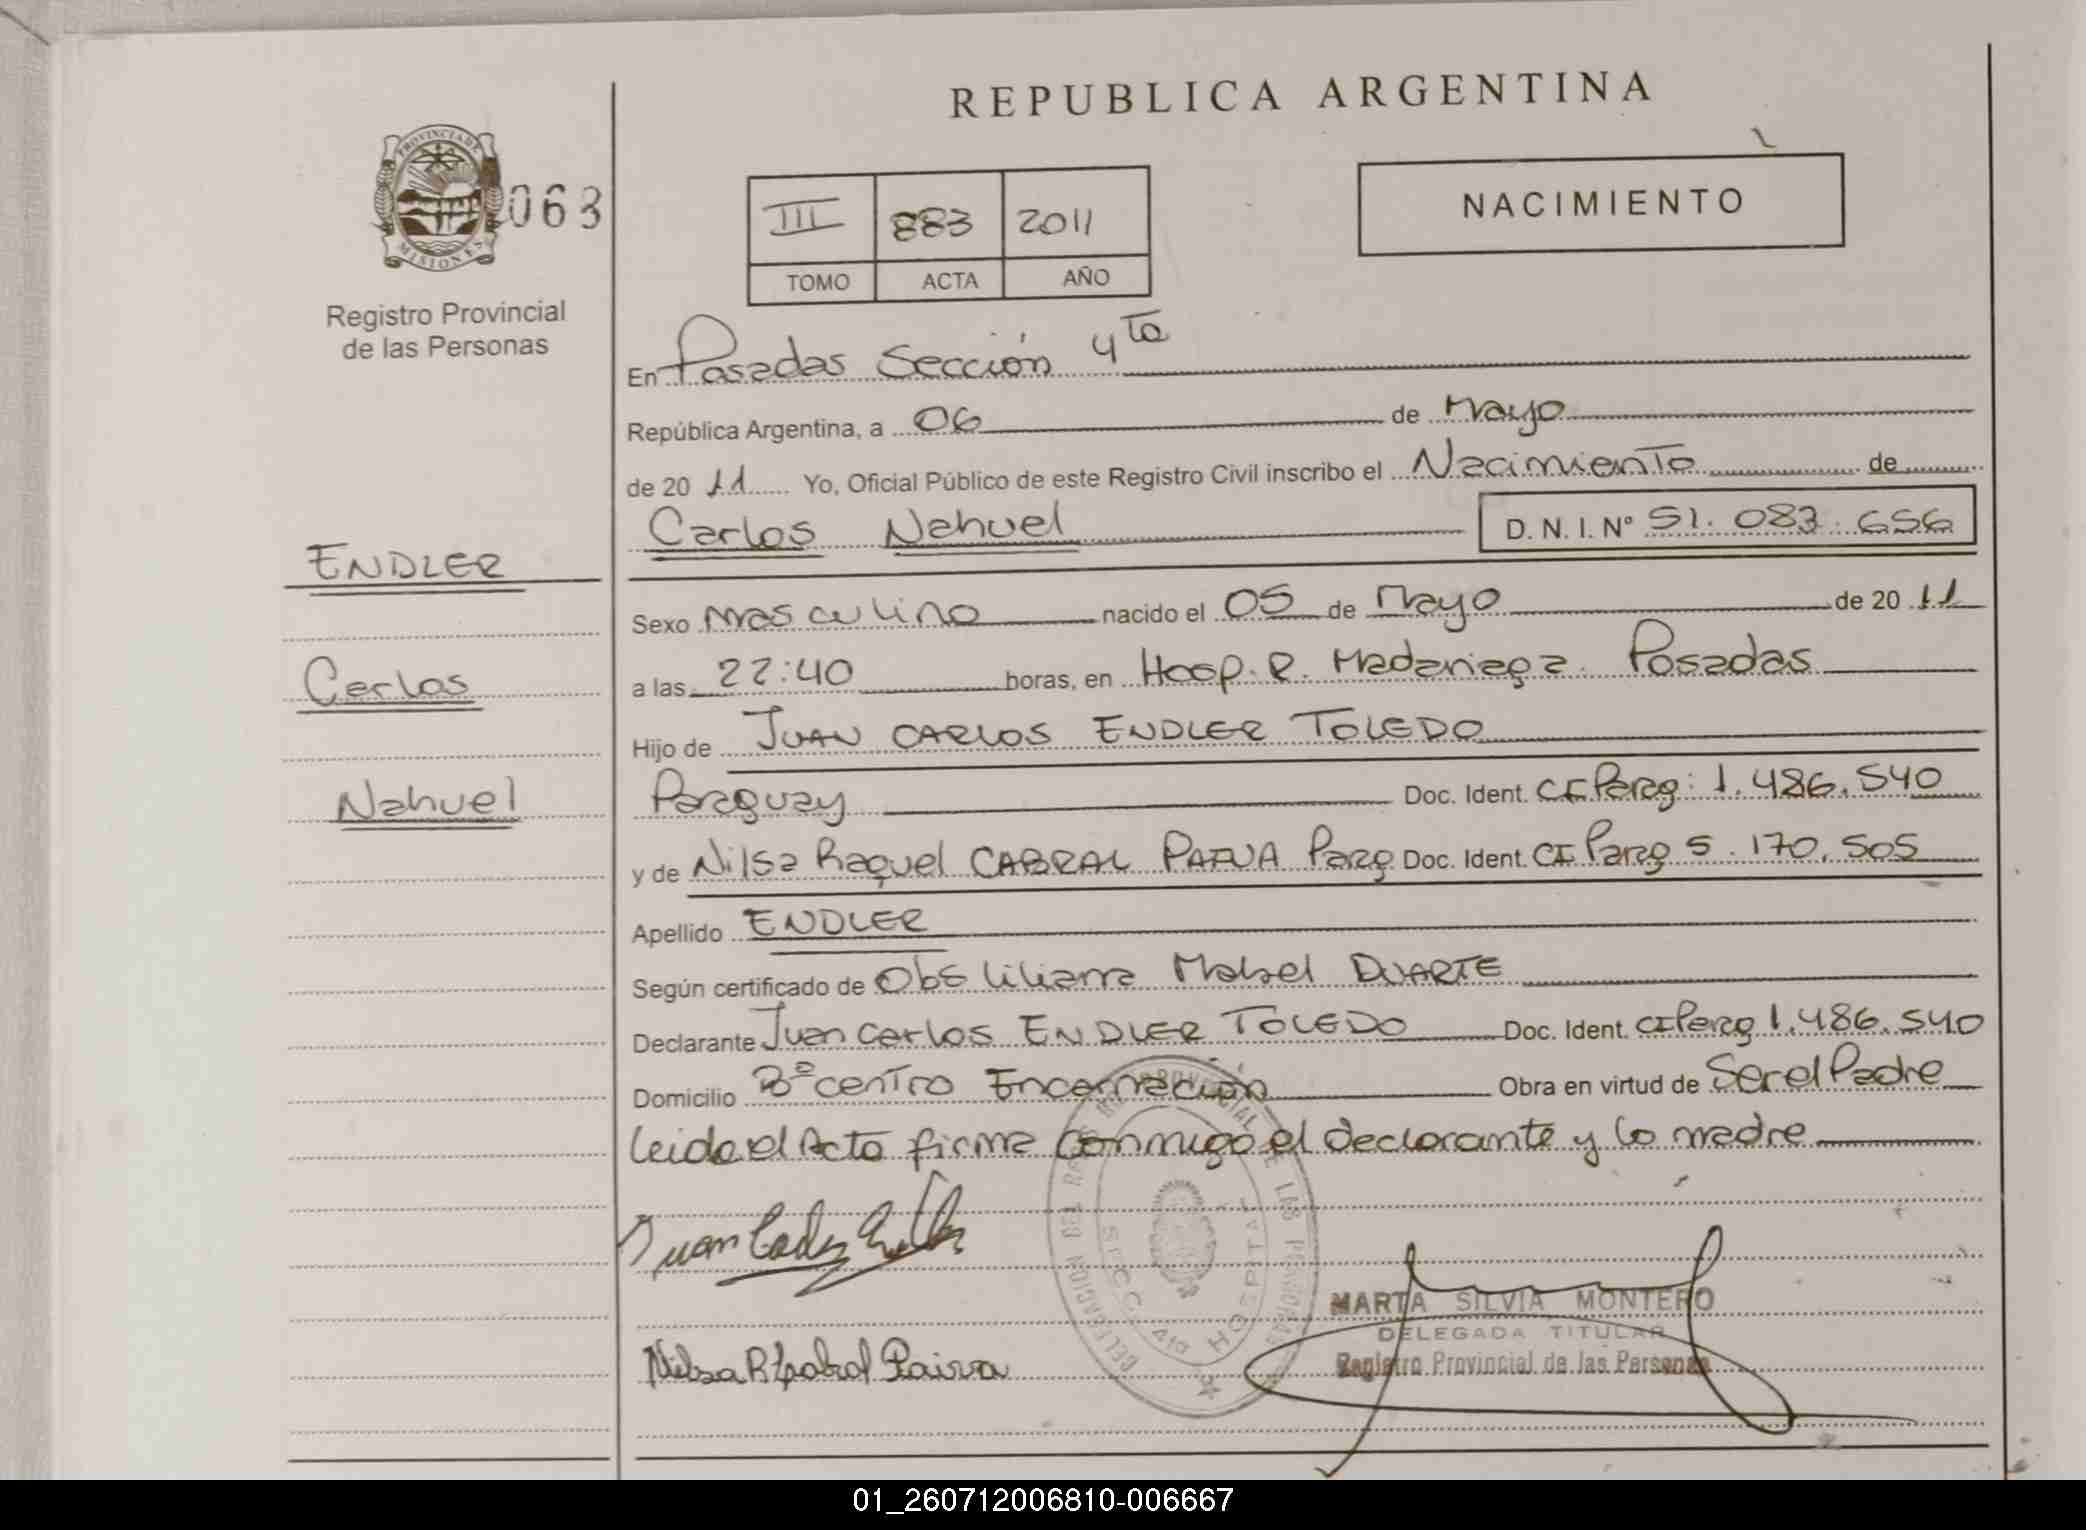 REPUBLICA ARGENTINA
PROVINCIA DE
MISIONES
063
Registro Provincial
de las Personas
III 883 2011
TOMO ACTA AÑO
NACIMIENTO
En Posadas Sección 4ta
República Argentina, a 06 de Mayo
de 20 11 Yo, Oficial Público de este Registro Civil inscribo el Nacimiento de
Carlos Nahuel D. N. I. Nº 51.083.656
ENDLER
Sexo masculino nacido el 05 de Mayo de 20 11
Carlos
a las 22:40 boras, en Hosp. R. Madariaga. Posadas
Hijo de JUAN CARLOS ENDLER TOLEDO
Nahuel
Paraguay Doc. Ident. CI Parag: 1.486.540
y de Nilsa Raquel CABRAL PAIVA Parg Doc. Ident. CI Parag 5.170.505
Apellido ENDLER
Según certificado de Obs Liliana Mabel DUARTE
Declarante Juan Carlos ENDLER TOLEDO Doc. Ident. CI Parag 1.486.540
Domicilio Bº centro Encarnación Obra en virtud de Ser el Padre
Leida el Acta firma conmigo el declarante y la madre
Juan Carlos Endler
DELEGACION DEL REGISTRO PROVINCIAL DE LAS PERSONAS
SECC. 4ta HOSPITAL
MARTA SILVIA MONTERO
DELEGADA TITULAR
Registro Provincial de las Personas
Nilsa R Cabral Paiva
01_260712006810-006667